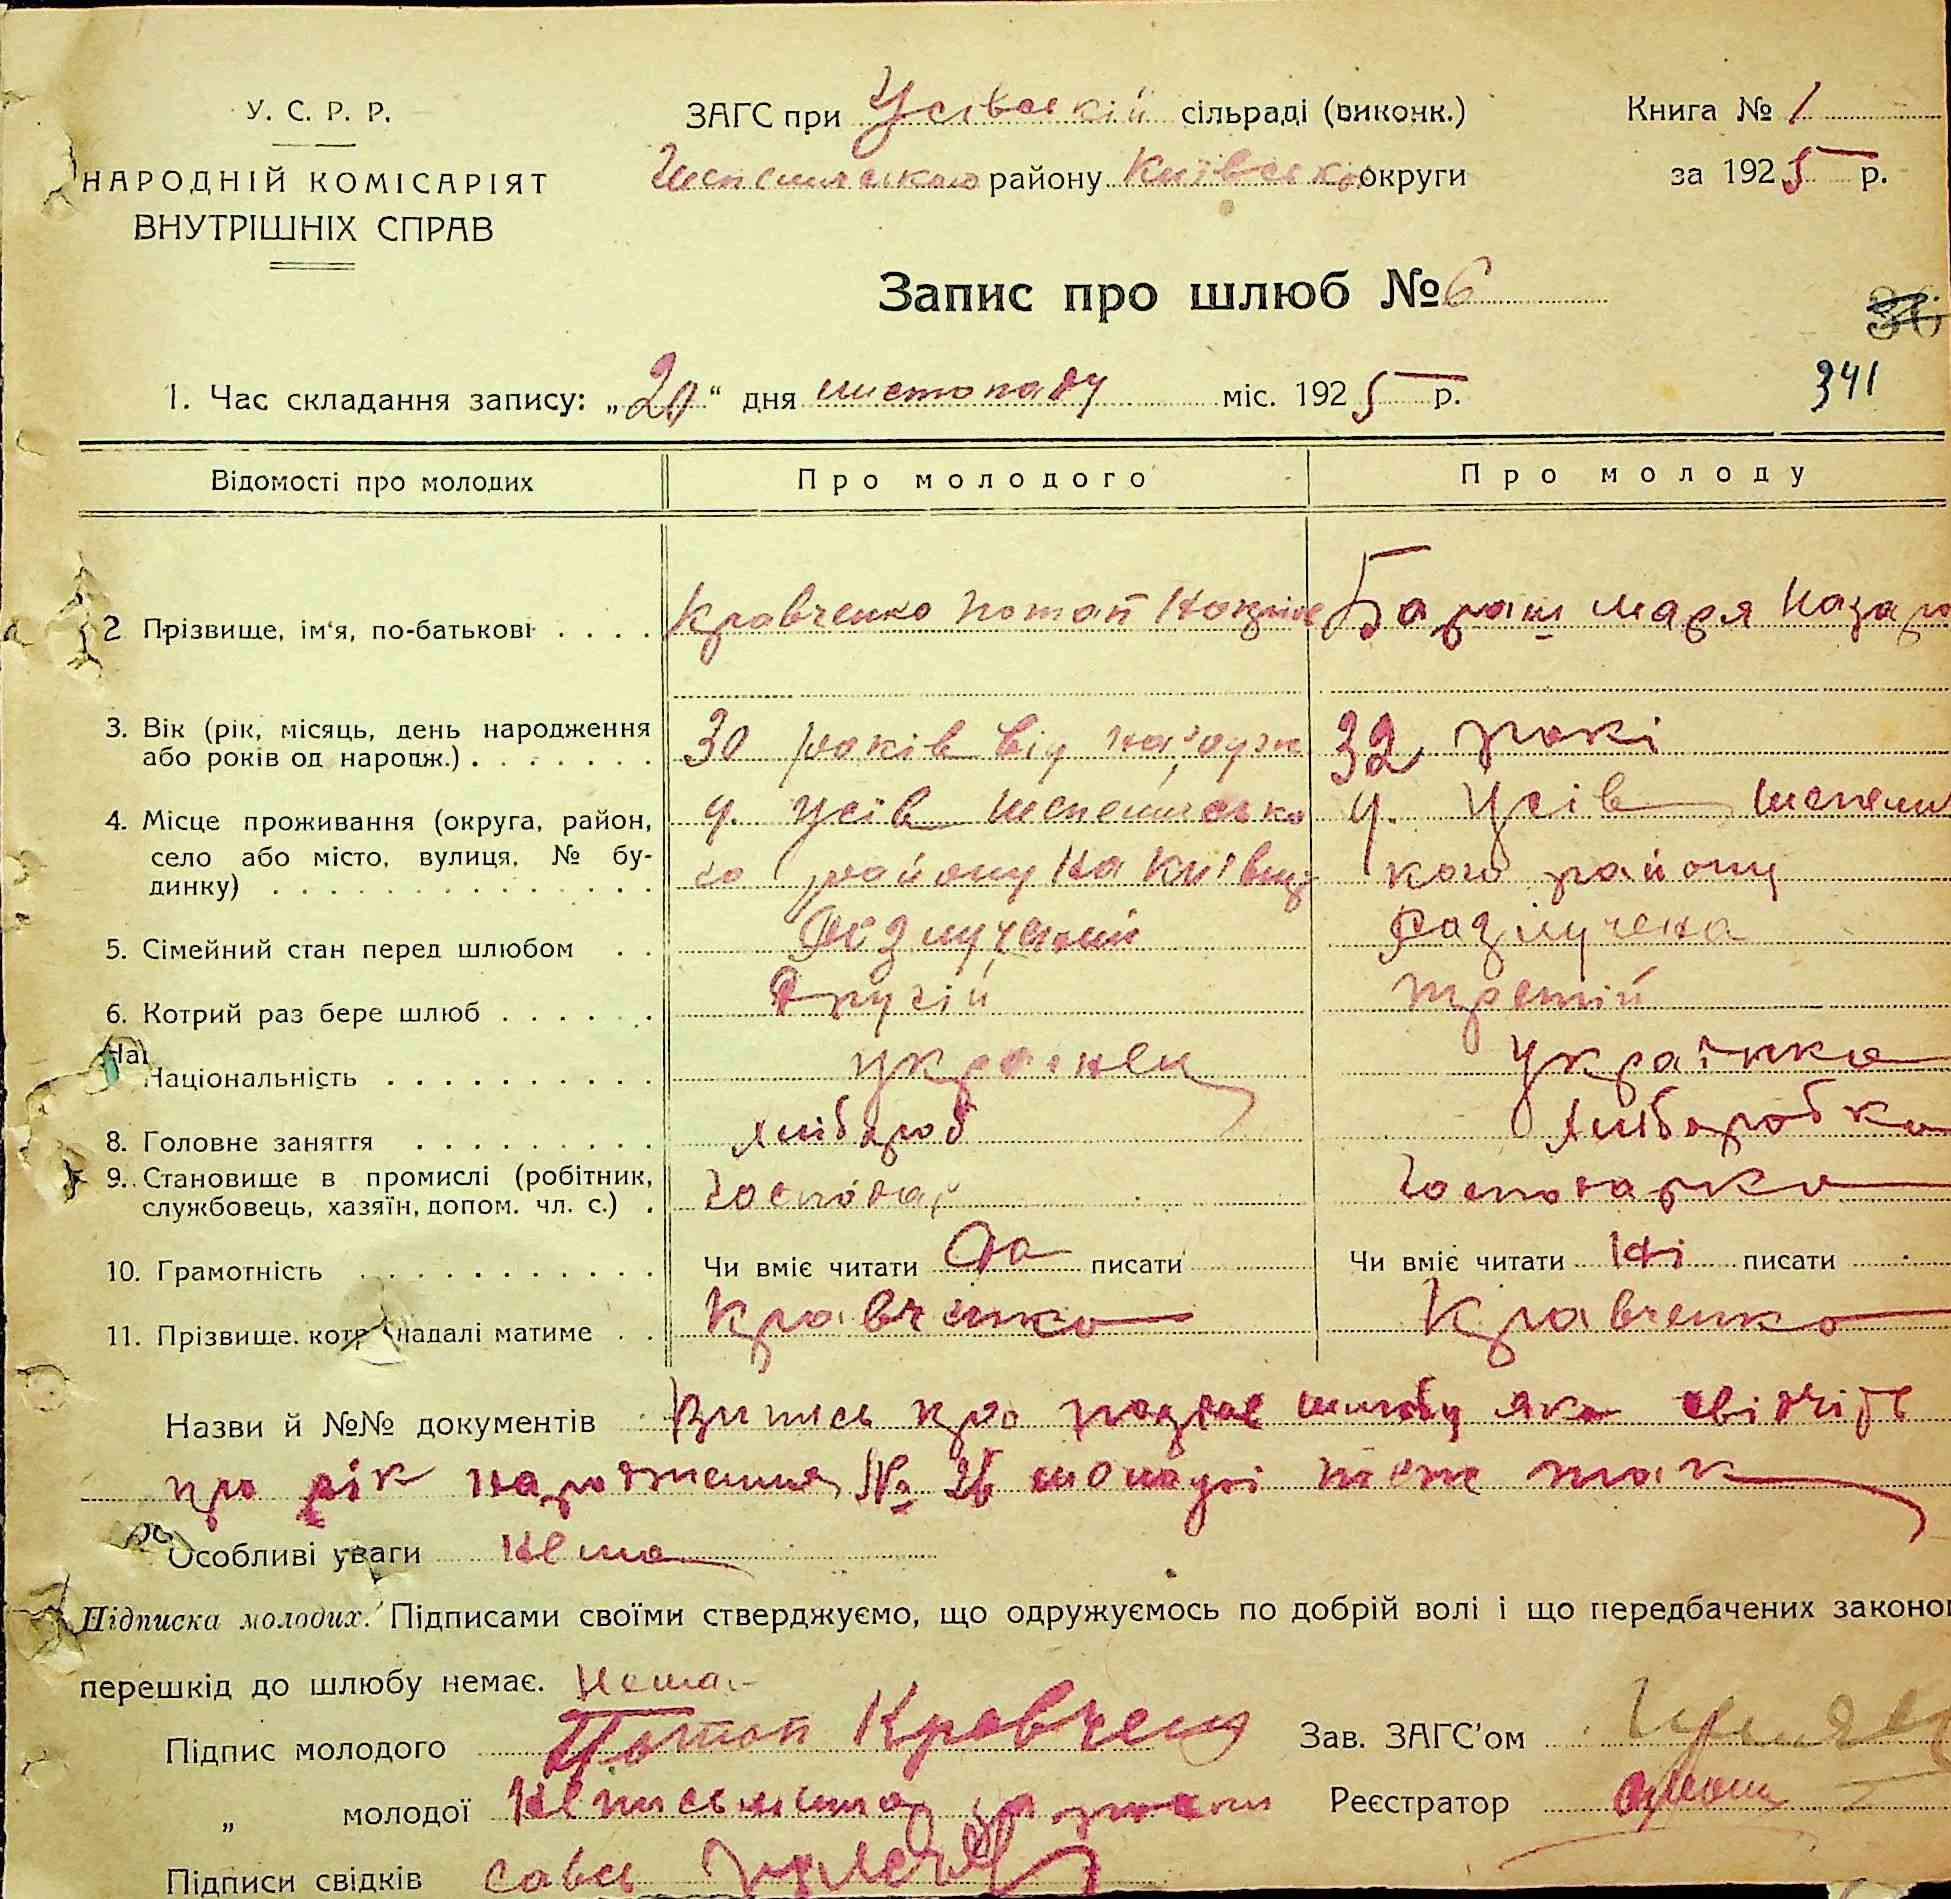 У. С. Р. Р.
НАРОДНІЙ КОМІСАРІЯТ
ВНУТРІШНІХ СПРАВ
ЗАГС при Усівській сільраді (виконк.)
району Київсько округи
Книга № 1
за 1925 р.
Запис про шлюб № 6
36
341
1. Час складання запису: „20“ дня листопаду міс. 1925 р.
Відомості про молодих
Про молодого
Про молоду
2 Прізвище, ім‘я, по-батькові . . . . Кравченко Потап Бараш Маря Назар
3. Вік (рік, місяць, день народження
або років од народж.) . . . . . . . 30 років від 32 рокі
4. Місце проживання (округа, район,
село або місто, вулиця, № бу-
динку) . . . . . . . . . . . . . . .
с. Усів
го району на Київщ
с. Усів
кого району
5. Сімейний стан перед шлюбом . . Розлучений Розлучена
6. Котрий раз бере шлюб . . . . . . Другій третій
На
Національність . . . . . . . . . . . українец українка
8. Головне заняття . . . . . . . . . . хлібороб хліборобка
9. Становище в промислі (робітник,
службовець, хазяїн, допом. чл. с.) . Господар Господарка
10. Грамотність . . . . . . . . . . . . Чи вміє читати Да писати Чи вміє читати Ні писати
11. Прізвище. котр надалі матиме . . Кравченко Кравченко
Назви й №№ документів Випись про шлюбу яка свідчіть
про рік народження № 26 молодої теж так
Особливі уваги нема
Підписка молодих. Підписами своїми стверджуємо, що одружуємось по добрій волі і що передбачених законо
перешкід до шлюбу немає. Нема
Підпис молодого Потап Кравченко
Зав. ЗАГС’ом
„ молодої Неписьменна
Реєстратор
Підписи свідків Сава